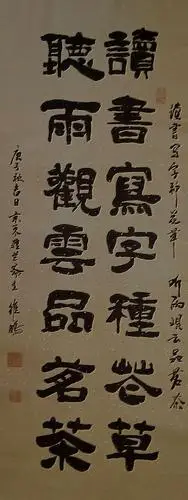 讀書寫字種花草
聽雨觀雲品茗茶
讀書寫字種花草 聽雨觀雲品茗茶
庚子秋吉日